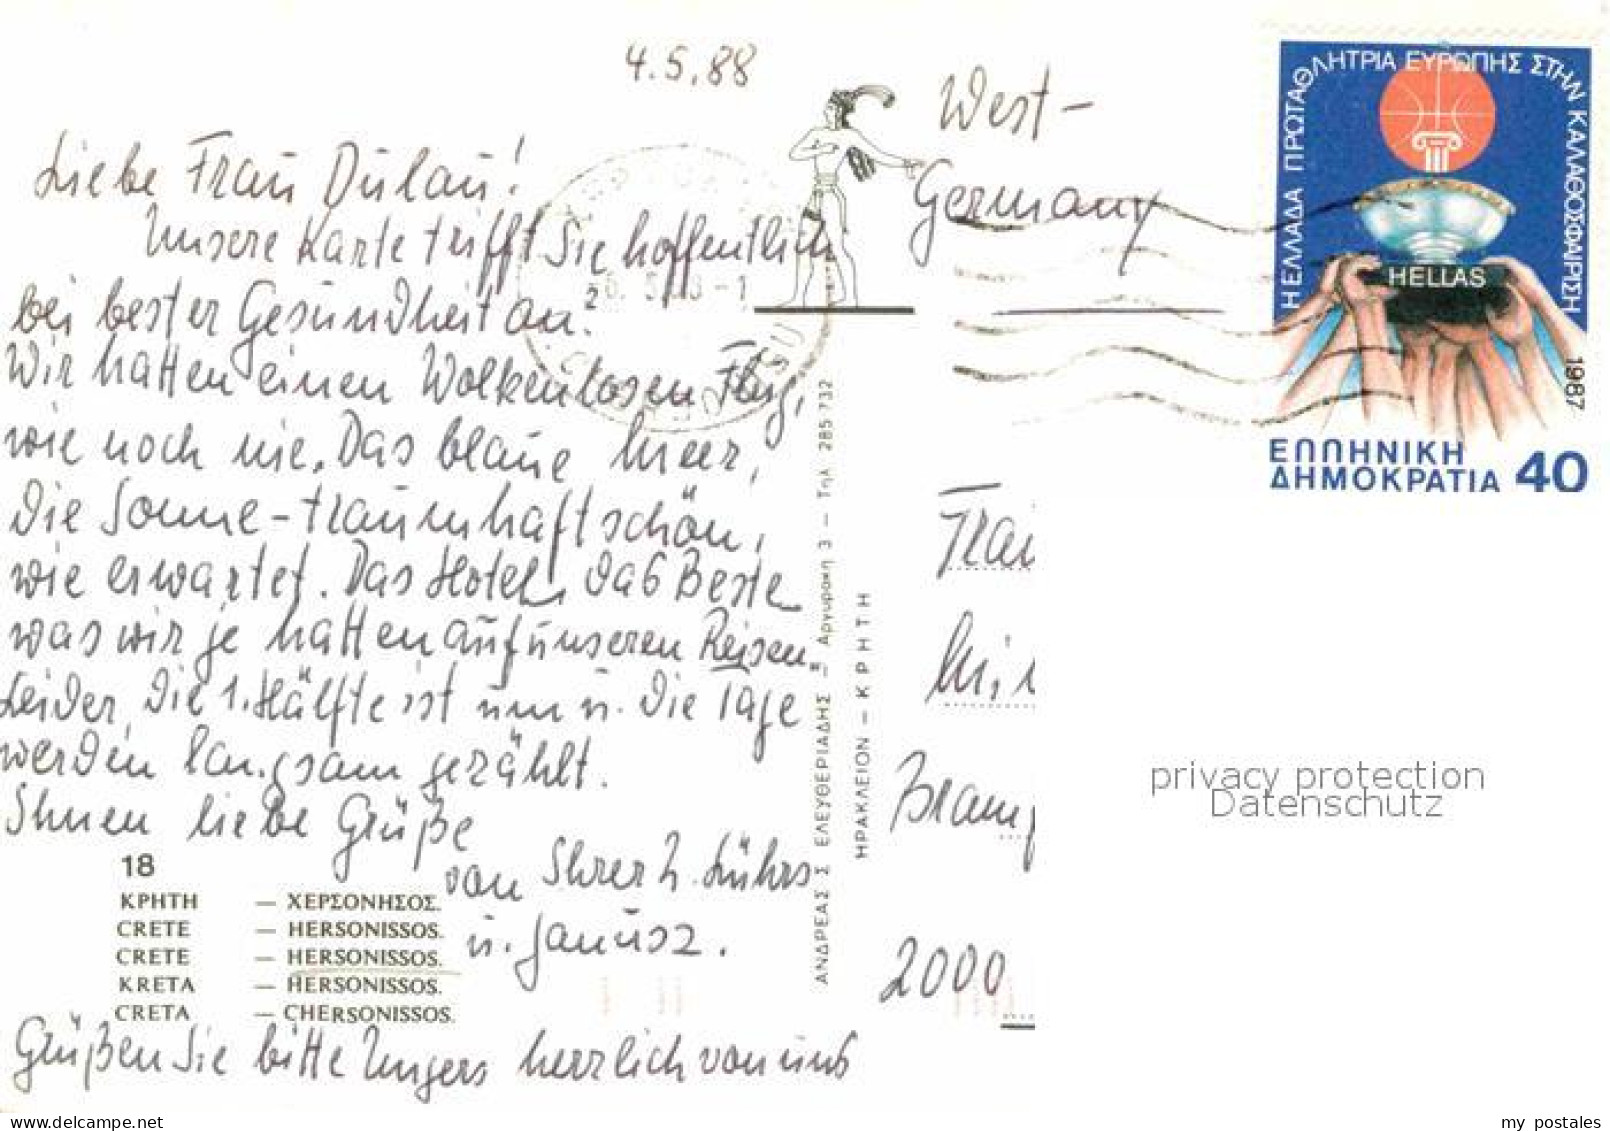 4.5.88
Liebe Frau Dulau!
Unsere Karte trifft Sie hoffentlich
bei bester Gesundheit an.
Wir hatten einen Wolkenlosen Flug,
wie noch nie. Das blaue Meer,
die Sonne - traumhaft schön,
wie erwartet. Das Hotel, das Beste
was wir je hatten auf unseren Reisen.
Leider, die 1. Hälfte ist um u. die Tage
werden langsam gezählt.
Ihnen liebe Grüße
von Ihrer h. Lührs
u. Janusz.
18
ΚΡΗΤΗ — ΧΕΡΣΟΝΗΣΟΣ.
CRETE — HERSONISSOS.
CRETE — HERSONISSOS.
KRETA — HERSONISSOS.
CRETA — CHERSONISSOS.
Grüßen Sie bitte Ungers herzlich von uns
ΑΝΔΡΕΑΣ Σ ΕΛΕΥΘΕΡΙΑΔΗΣ — Αργυρακη 3 — Τηλ 285 732
ΗΡΑΚΛΕΙΟΝ — ΚΡΗΤΗ
West-
Germany
2000
Η ΕΛΛΑΔΑ ΠΡΩΤΑΘΛΗΤΡΙΑ ΕΥΡΩΠΗΣ ΣΤΗΝ ΚΑΛΑΘΟΣΦΑΙΡΙΣΗ
HELLAS
1987
ΕΛΛΗΝΙΚΗ
ΔΗΜΟΚΡΑΤΙΑ 40
privacy protection
Datenschutz
my postales